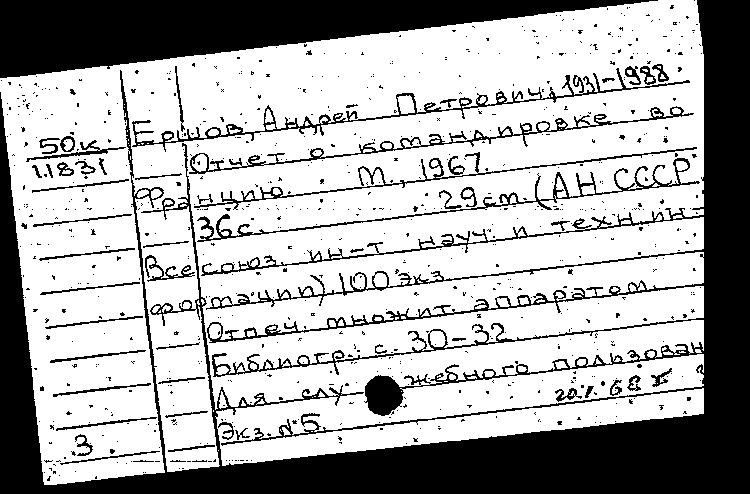 Ершов, Андрей Петрович, 1931-1988.
50к
11831
Отчет о командировке во
Францию. М., 1967.
36с. 29см. (АН СССР
Всесоюз. ин-т науч. и техн. ин-
формации). 100 экз.
Отпеч. множит. аппаратом.
Библиогр.: с. 30-32
Для служебного пользован
Экз. №5.
3